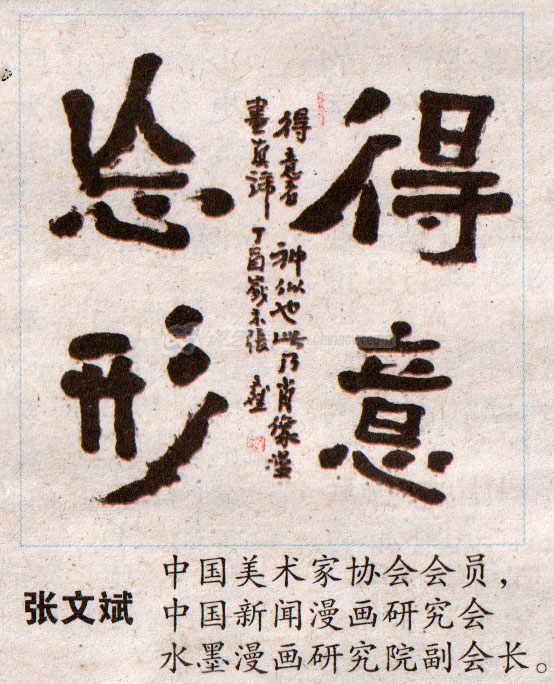 得意
忘形
得意者 神似也 此乃肖像漫
畫真諦 丁酉歲末 張
张文斌
中国美术家协会会员，
中国新闻漫画研究会
水墨漫画研究院副会长。